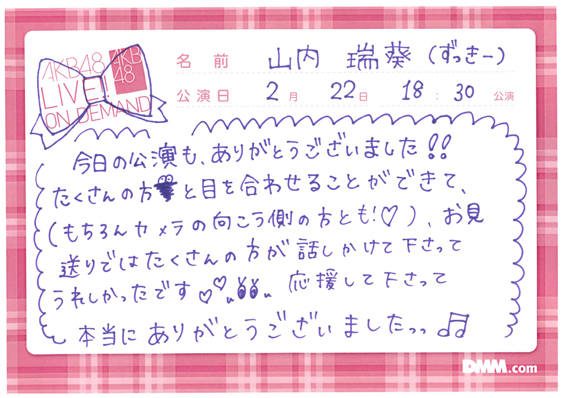 AKB48
LIVE!!
ON DEMAND
AKB
48
名前 山内 瑞葵(ずっきー)
公演日 2月 22日 18:30 公演
今日の公演も、ありがとうございました!!
たくさんの方と目を合わせることができて、
(もちろんカメラの向こう側の方とも!♡)、お見
送りではたくさんの方が話しかけて下さって
うれしかったです♡♡ 応援して下さって
本当にありがとうございましたっっ♫
DMM.com